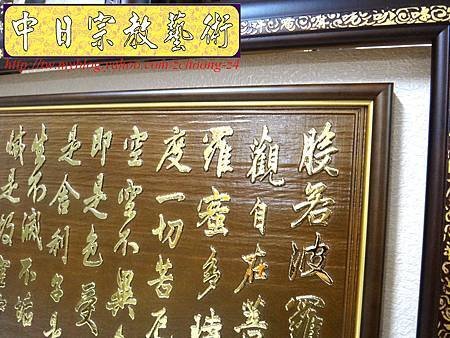 中日宗教藝術
http://tw.myblog.yahoo.com/zchoong-z4
般若波羅
觀自在菩
羅蜜多時
度一切苦厄
空空不異
即是色受
是舍利子是
生不滅不垢
減是故空